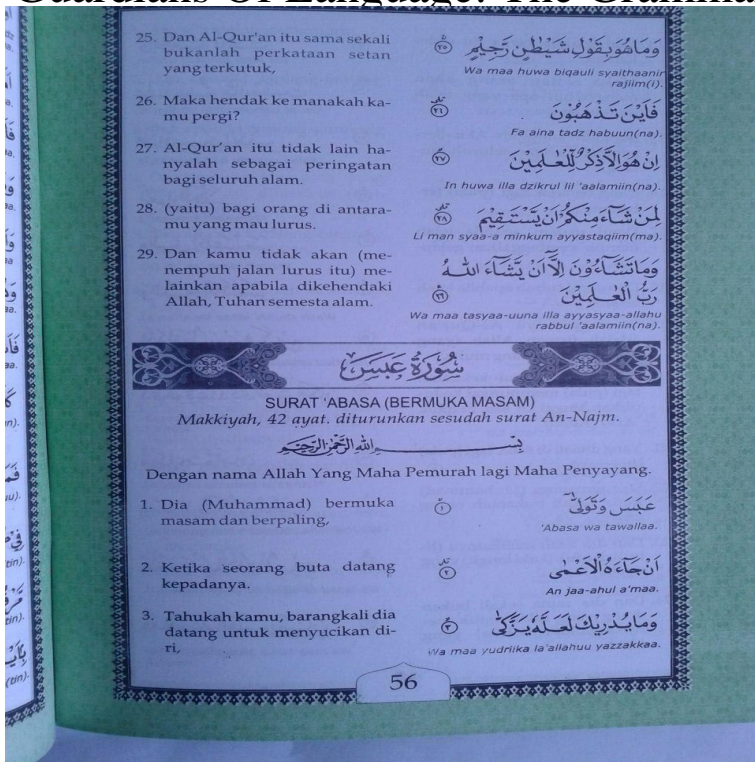 25. Dan Al-Qur'an itu sama sekali
bukanlah perkataan setan
yang terkutuk,
وَمَا هُوَ بِقَوْلِ شَيْطٰنٍ رَّجِيْمٍ ۝٢٥
Wa maa huwa biqauli syaithaanir
rajiim(i).
26. Maka hendak ke manakah ka-
mu pergi?
فَاَيْنَ تَذْهَبُوْنَ ۝٢٦
Fa aina tadz habuun(na).
27. Al-Qur'an itu tidak lain ha-
nyalah sebagai peringatan
bagi seluruh alam.
اِنْ هُوَ اِلَّا ذِكْرٌ لِّلْعٰلَمِيْنَ ۝٢٧
In huwa illa dzikrul lil 'aalamiin(na).
28. (yaitu) bagi orang di antara-
mu yang mau lurus.
لِمَنْ شَاۤءَ مِنْكُمْ اَنْ يَّسْتَقِيْمَ ۝٢٨
Li man syaa-a minkum ayyastaqiim(ma).
29. Dan kamu tidak akan (me-
nempuh jalan lurus itu) me-
lainkan apabila dikehendaki
Allah, Tuhan semesta alam.
وَمَا تَشَاۤءُوْنَ اِلَّآ اَنْ يَّشَاۤءَ اللّٰهُ
رَبُّ الْعٰلَمِيْنَ ۝٢٩
Wa maa tasyaa-uuna illa ayyasyaa-allahu
rabbul 'aalamiin(na).
سُوْرَةُ عَبَسَ
SURAT 'ABASA (BERMUKA MASAM)
Makkiyah, 42 ayat. diturunkan sesudah surat An-Najm.
بِسْمِ اللّٰهِ الرَّحْمٰنِ الرَّحِيْمِ
Dengan nama Allah Yang Maha Pemurah lagi Maha Penyayang.
1. Dia (Muhammad) bermuka
masam dan berpaling,
عَبَسَ وَتَوَلّٰىٓ ۝١
'Abasa wa tawallaa.
2. Ketika seorang buta datang
kepadanya.
اَنْ جَاۤءَهُ الْاَعْمٰى ۝٢
An jaa-ahul a'maa.
3. Tahukah kamu, barangkali dia
datang untuk menyucikan di-
ri,
وَمَا يُدْرِيْكَ لَعَلَّهٗ يَزَّكّٰىٓ ۝٣
Wa maa yudriika la'allahuu yazzakkaa.
56